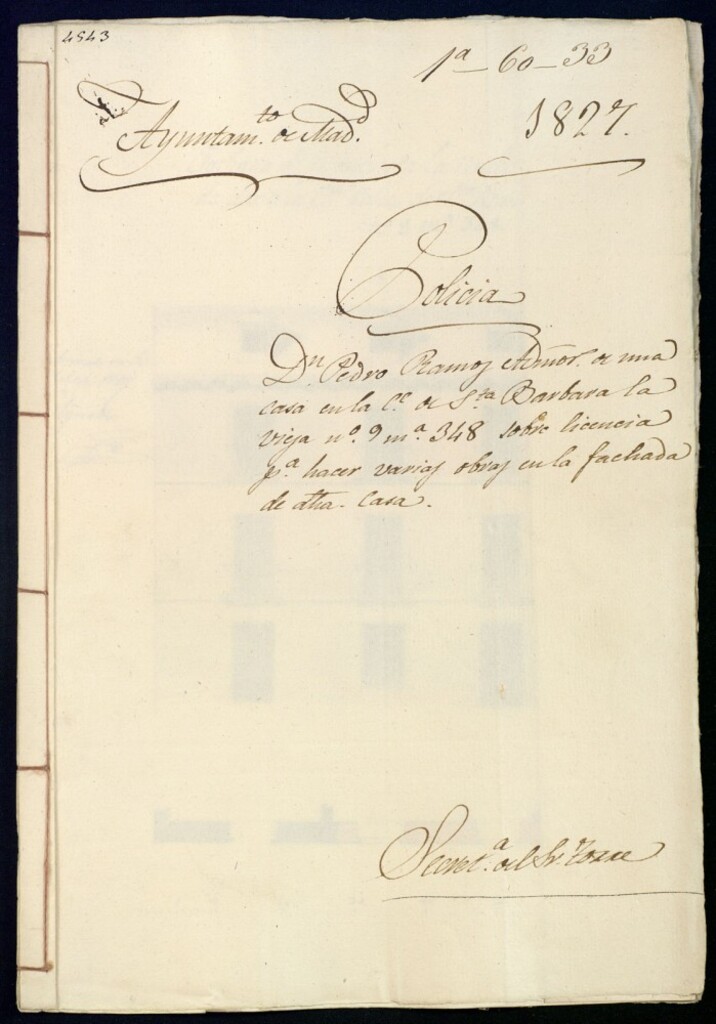 4543
1ª - 60 - 33
Ayuntam.to de Mad.d
1827.
Policia
Dn. Pedro Ramos Admōr. de una
casa en la c.e de S.ta Barbara la
vieja nº. 9 m.ª 348 sobre licencia
p.ª hacer varias obras en la fachada
de dha. casa.
Secret.ª del Sr. Torre